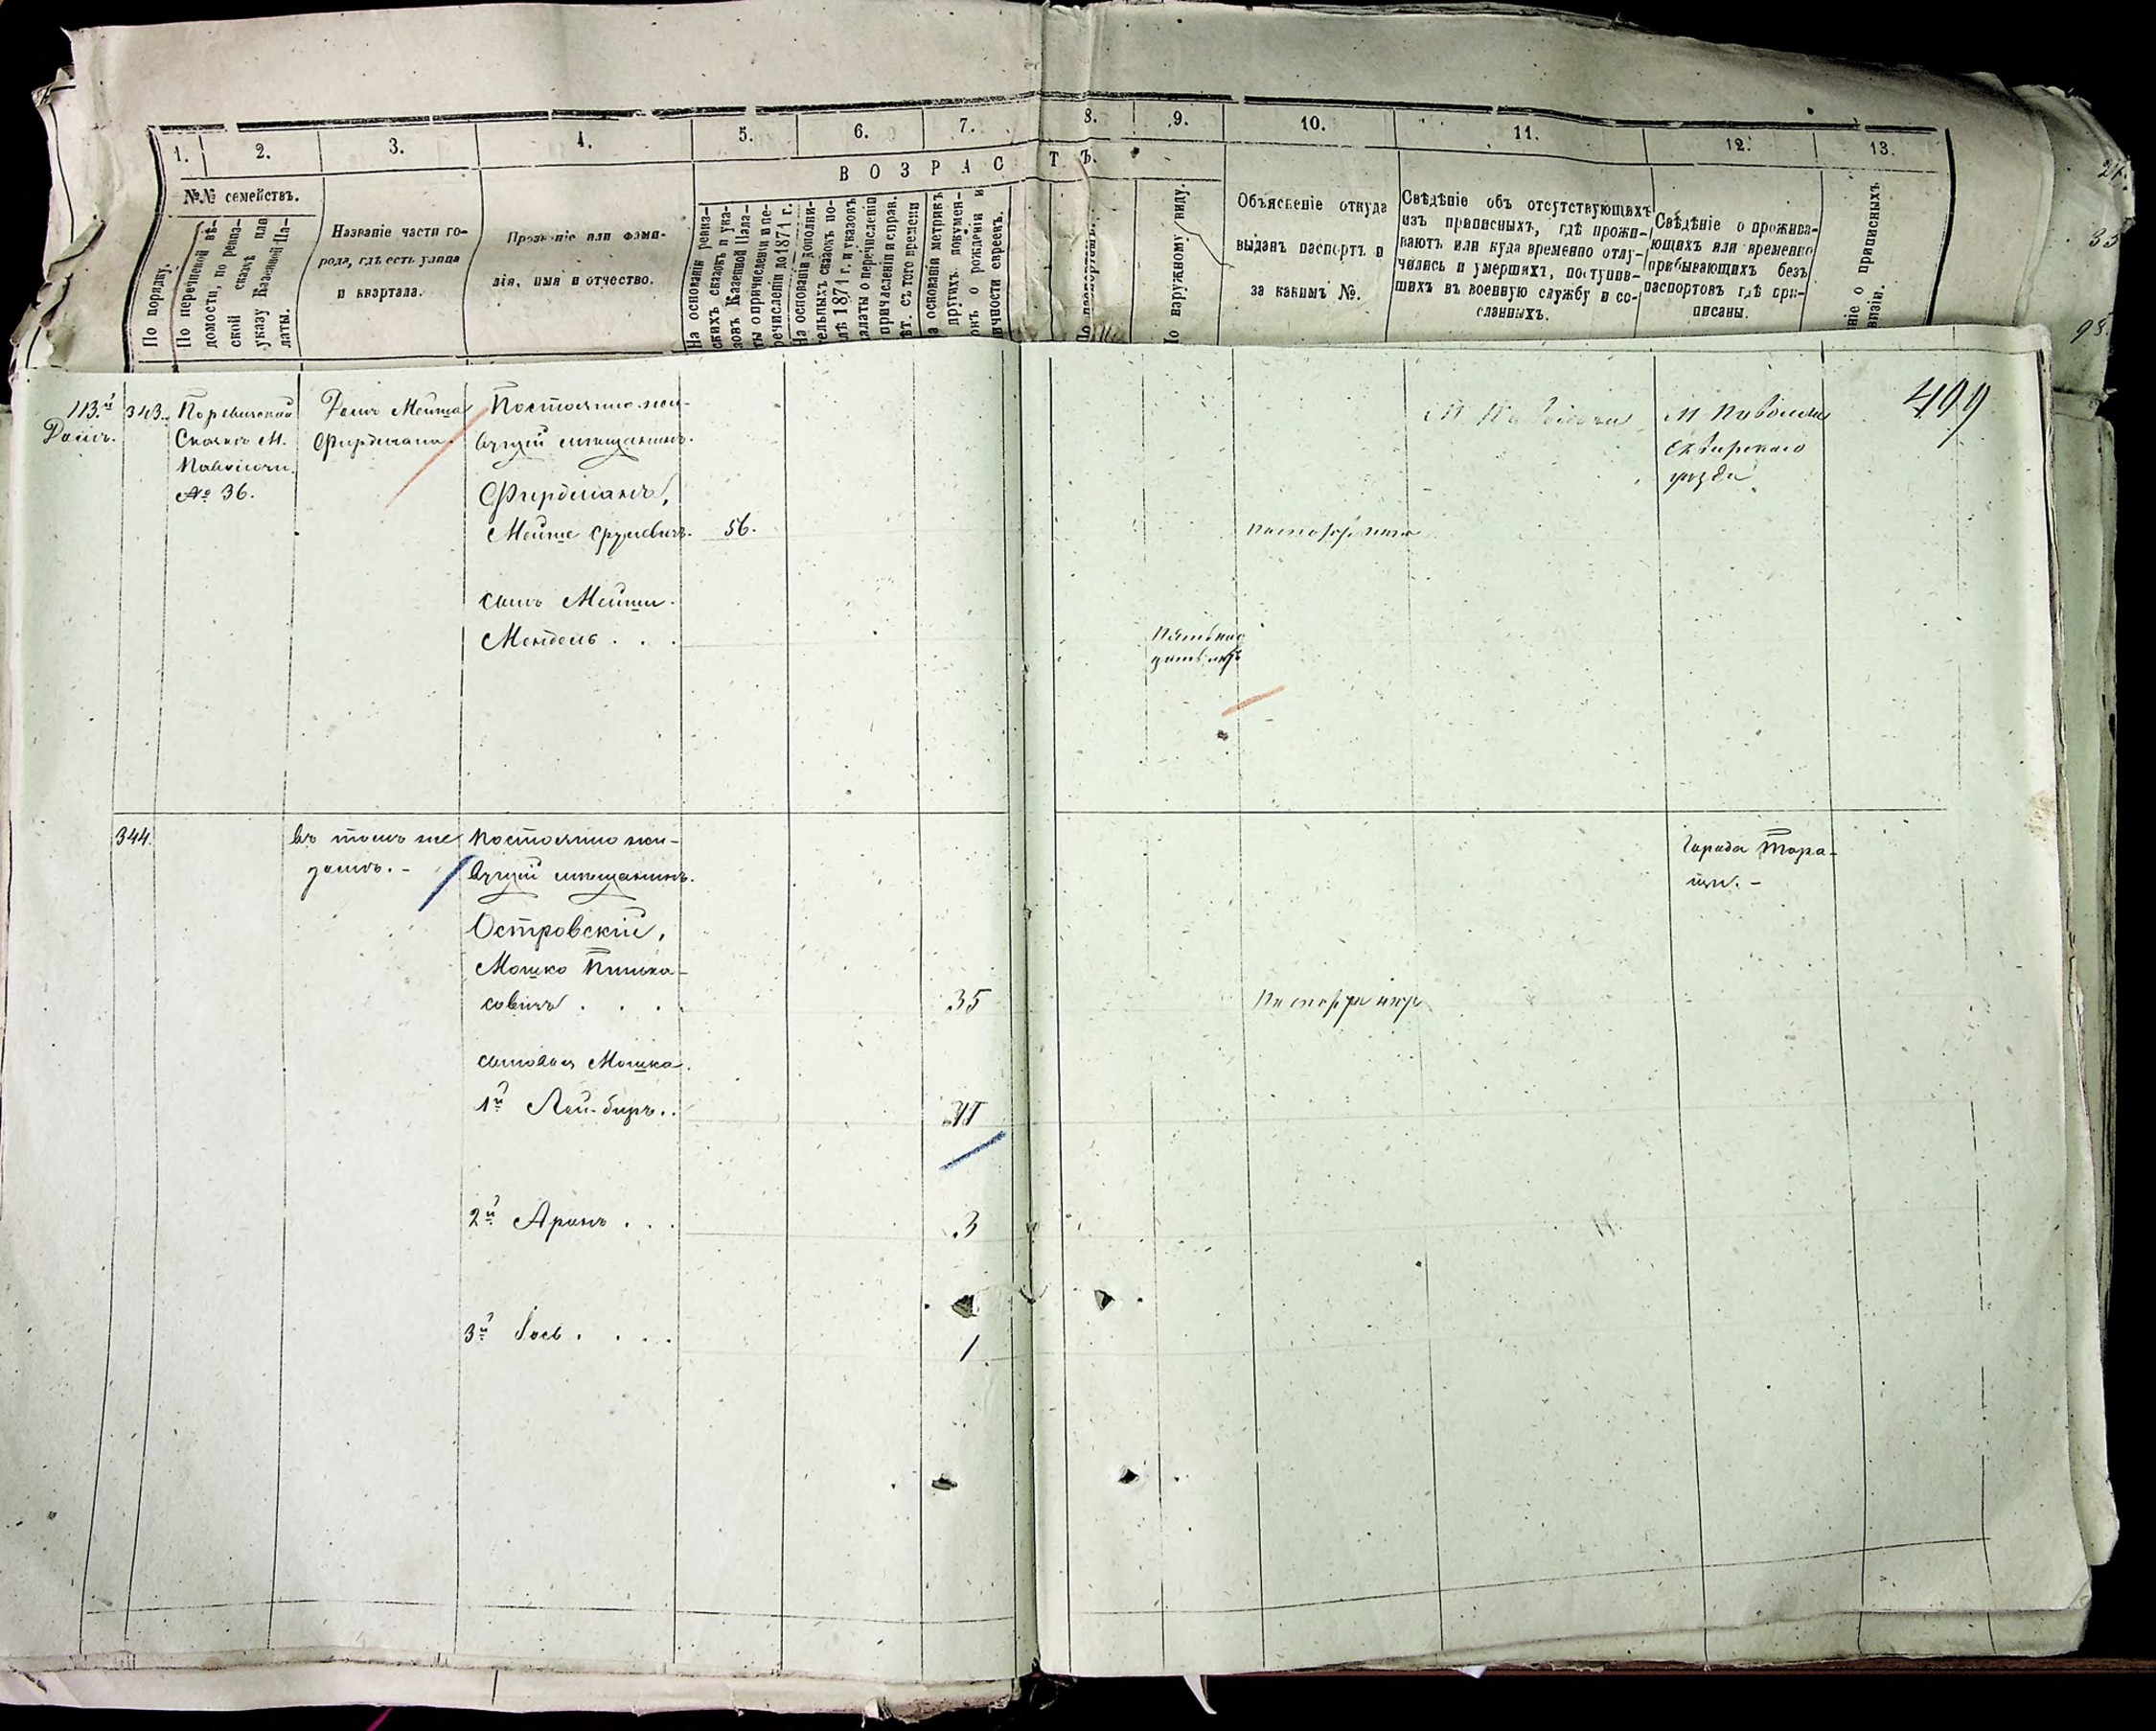 1. 2. 3. 4. 5. 6. 7. 8. 9. 10. 11. 12. 13.
ВОЗРАСТЪ.
№№ семействъ.
По порядку.
По перечневой вѣ-
домости, по ревиз-
ской сказкѣ или
указу Казенной Па-
латы.
Названіе части го-
рода, гдѣ есть улица
и квартала.
Прозваніе или фами-
лія, имя и отчество.
На основаніи ревиз-
скихъ сказокъ и ука-
зовъ Казенной Пала-
ты о причисленіи и пе-
речисленіи до 1871 г.
На основаніи дополни-
тельныхъ сказокъ по-
слѣ 1871 г. и указовъ
палаты о перечисленіи
причисленіи и справ.
лѣт. съ того времени
На основаніи метрикъ
другихъ докумен-
товъ о рожденіи и
личности евреевъ.
По наружному виду.
Объясненіе откуда
выданъ паспортъ и
за какимъ №.
Свѣдѣніе объ отсутствующихъ
изъ приписныхъ, гдѣ прожи-
ваютъ или куда временно отлу-
чились и умершихъ, поступив-
шихъ въ военную службу и со-
сланныхъ.
Свѣдѣніе о прожива-
ющихъ или временно
прибывающихъ безъ
паспортовъ гдѣ при-
писаны.
ніе о приписныхъ
499
113.й
Домъ.
343.
Сказкѣ М.
Паволочи
№ 36.
Домъ Мейша
Фирдмана.
Постоянно жи-
вущій мѣщанинъ.
Фирдманъ,
Мейше Срулевичъ. 56.
сынъ Мейши.
Мендель . . .
М Паволочи
М Паволочи
Сквирскаго
уѣзда
344.
въ томъ же
домѣ. -
Постоянно жи-
вущій мѣщанинъ.
Островскій,
Мошко Пинька-
совичъ . . . . 35
сыновья Мошка.
1й Лей-биръ..
2й Аронъ . . . 3
3й . . . . 1
Города Тара-
щи. -